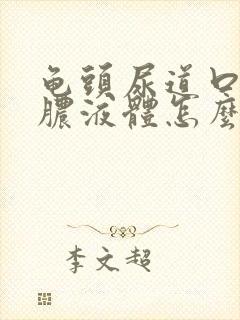 龟頭尿道口
膿液體怎麼
李文超